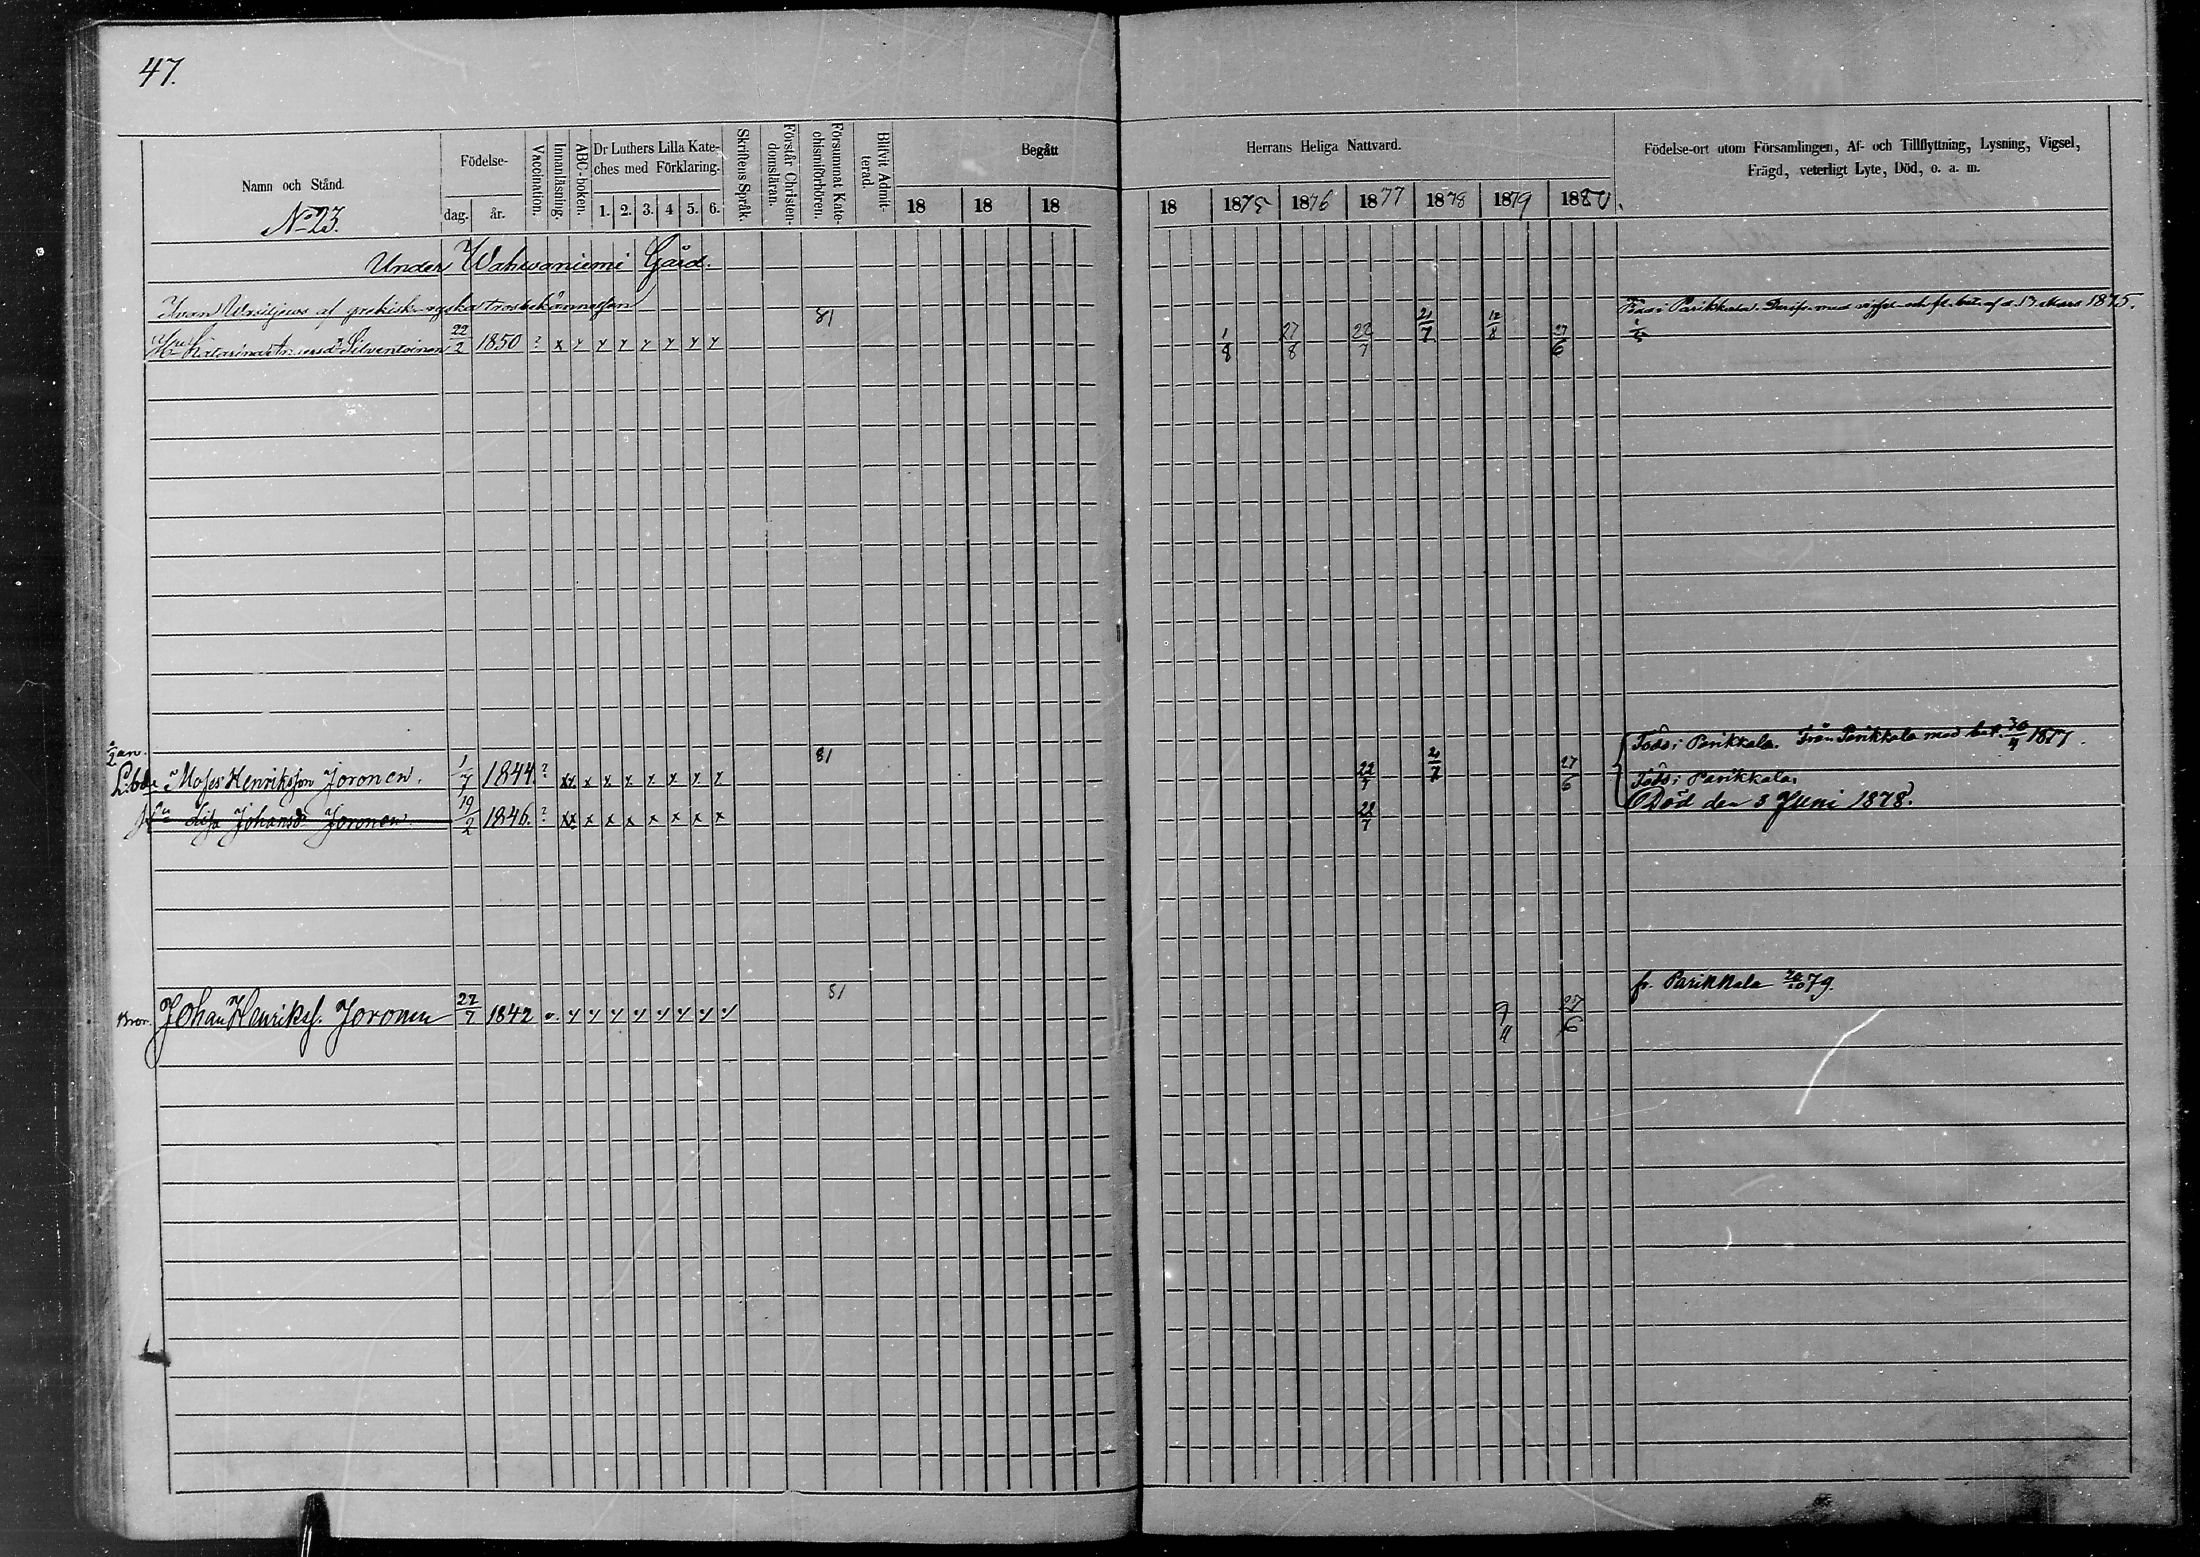 47.
Namn och Stånd.
No 23.
Födelse-
dag. år.
Vaccination.
Innanläsning.
ABC-boken.
Dr Luthers Lilla Kate-
ches med Förklaring.
1. 2. 3. 4 5. 6.
Skriftens Språk
Förstår Christen-
domsläran.
Försummat Kate-
chismiförhören.
Blifvit Admit-
terad.
Begått
18 18 18
Herrans Heliga Nattvard.
18 1875 1876 1877 1878 1879 1880.
Födelse-ort utom Församlingen, Af- och Tillflyttning, Lysning, Vigsel,
Frägd, veterligt Lyte, Död, o. a. m.
Under Wahwaniemi Gård.
Ivan Wasiljews af grekisk-ryska trosbekännelsen
81
Född i Parikkala. med af d. 17 Mars 1875.
Katarina Silventoinen 22/2 1850 ? x y y y y y y y 1/8 27/8 22/7 21/7 12/8 27/6
81
Född i Parikkala. Från Parikkala med bet. 30/4 1877.
Moses Henriksson Joronen. 1/7 1844. ? xx x x x x x x y 22/7 21/7 27/6 Född i Parikkala.
Lisa Johansdr Joronen. 19/2 1846. ? xx x x x x x x x 22/7 Död den 3 Juni 1878.
81
fr. Parikkala 20/10 79.
Bror. Johan Henrikss. Joronen 22/7 1842 v. y y y y y y y y 9/11 27/6